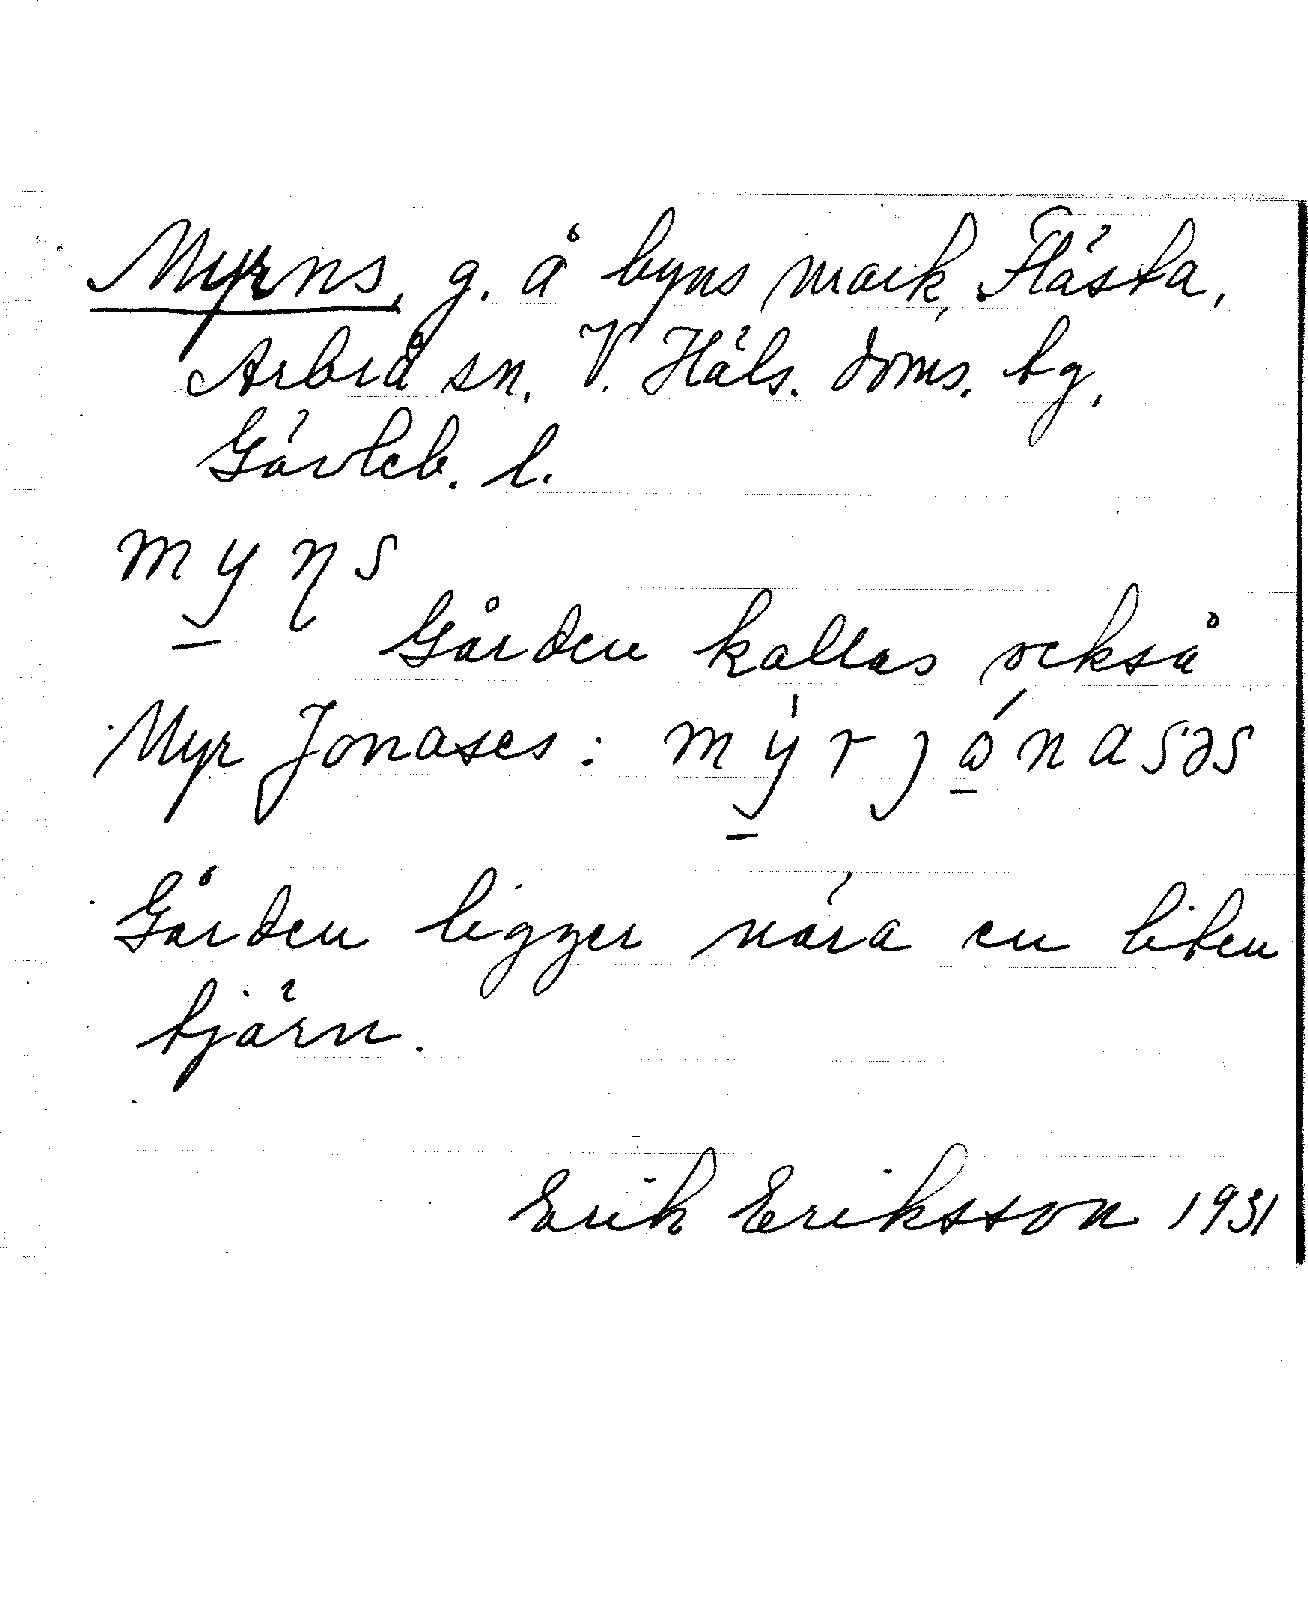 Myrns, g. å byns mark, Flästa,
Arbrå sn. V. Häls. doms. tg,
Gävleb. l.
my̠ɳs
Gården kallas också
Myr Jonases: mý̠rjó̠nasəs
Gården ligger nära en liten
tjärn.
Erik Eriksson 1931